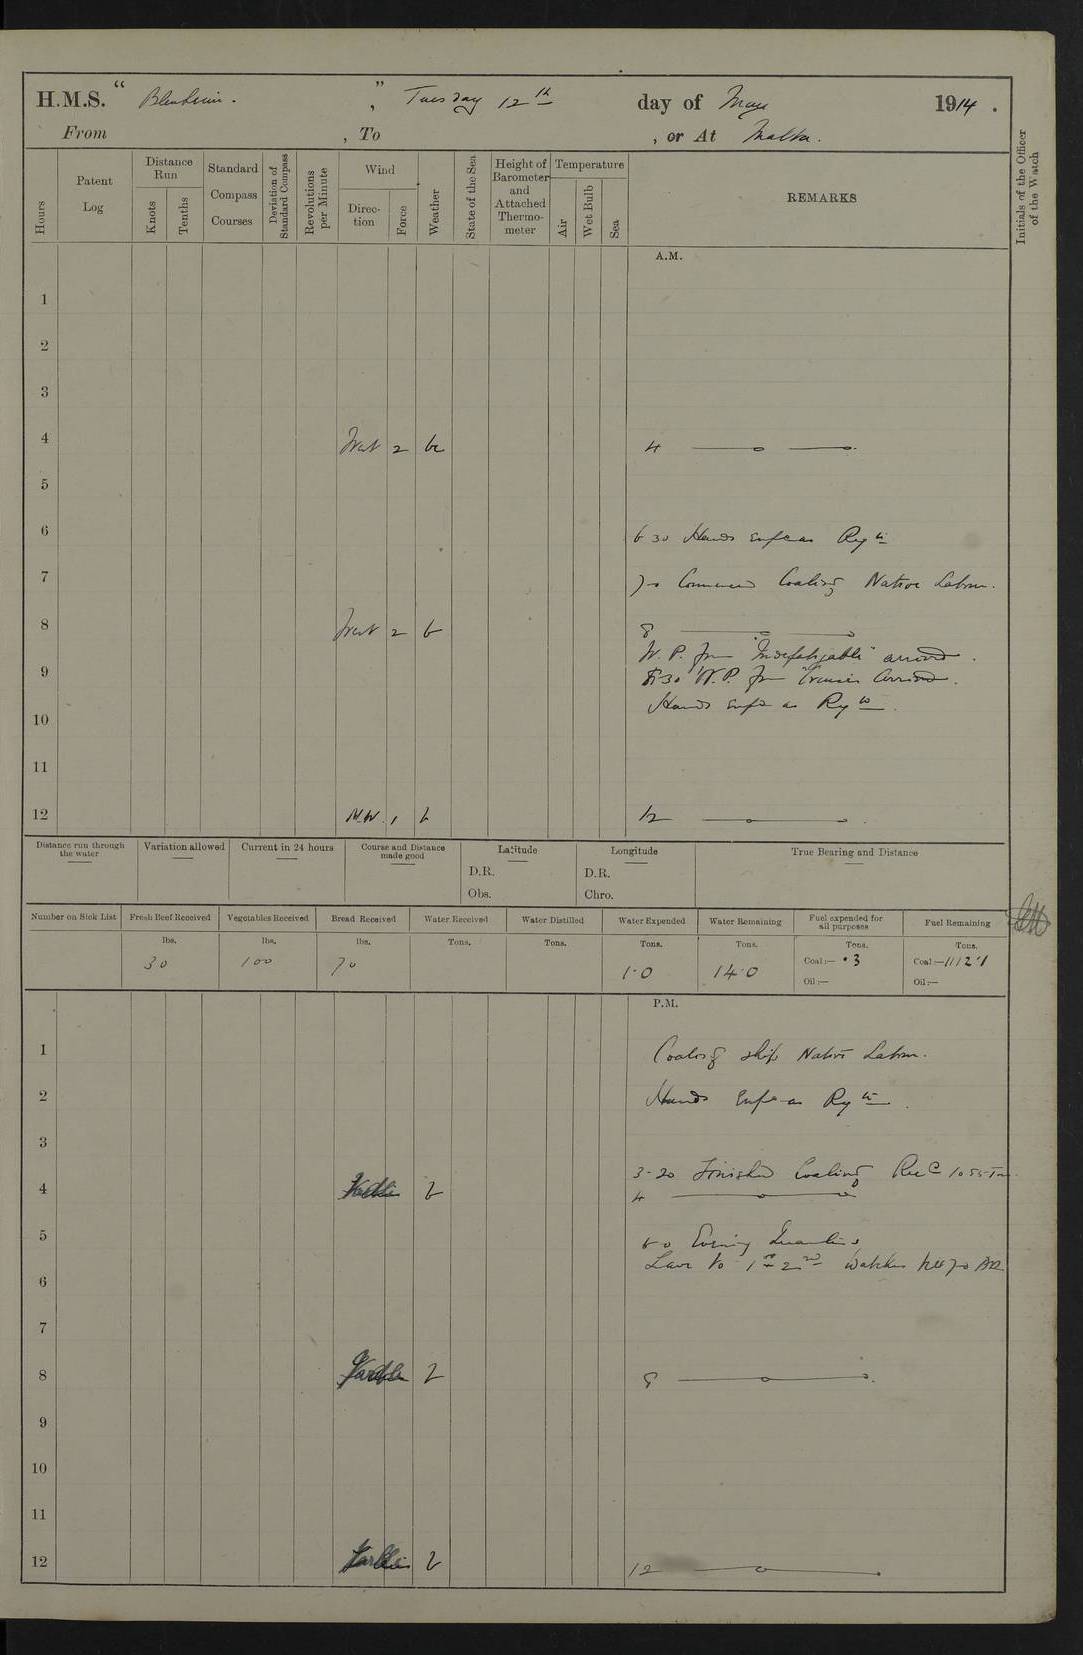 H.M.S. “ Blenheim. ” , Tuesday 12th day of May 1914 .
From , To , or At Malta.
Hours
Patent Log
Distance Run
Knots
Tenths
Standard Compass Courses
Deviation of Standard Compass
Revolutions per Minute
Wind
Direction
Force
Weather
State of the Sea
Height of Barometer and Attached Thermometer
Temperature
Air
Wet Bulb
Sea
REMARKS
Initials of the Officer of the Watch
A.M.
1
2
3
4 West 2 bc 4
5
6 6 30 Hands emp as Reqte
7 7-0 Commenced Coaling Native Labour.
8 West 2 b 8
W. P. from "Indefatigable" arrived.
9 8.30 W.P. from Cruiser Arrived.
Hands emp as Reqte.
10
11
12 N.W. 1 b 12
Distance run through the water
Variation allowed
Current in 24 hours
Course and Distance made good
Latitude
D.R.
Obs.
Longitude
D.R.
Chro.
True Bearing and Distance
Number on Sick List
Fresh Beef Received
Vegetables Received
Bread Received
Water Received
Water Distilled
Water Expended
Water Remaining
Fuel expended for all purposes
Fuel Remaining
lbs. lbs. lbs. Tons. Tons. Tons. Tons. Tons. Tons.
30 100 70 10 140 Coal:— .3 Coal:—1112.1
Oil:— Oil:—
P.M.
1 Coaling ship Native Labour.
2 Hands emp as Reqte.
3
3-20 Finished Coaling Recd 1055 Tons
4 Variable b 4
5 Evening Quarters
Leave to 1st 2nd Watches till 7-0 AM
6
7
8 Variable b 8
9
10
11
12 Variable b 12